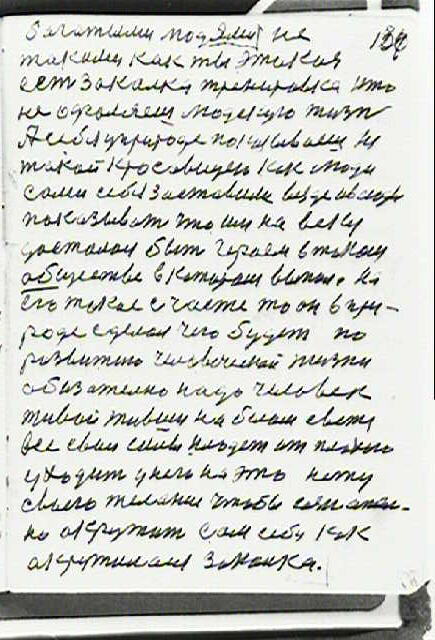 богатыми людями не 138
таками как ты этакая
ест закалка тренировка что
не оформляеш людскую жизн
А себя у природе показываеш не
такой красавицею как люди
сами себя заставили везде всюду
показыват что им на веку
досталас быт героем в таком
обществе в катором выпол. На
его такое счастё то он в при-
роде сделал чего будет по
развитию человеческой жизни
обязателно надо человек
живой живши на белом свете
все свои силы кладет от плохого
уходит у него на это нету
своего желание чтобы сазнател-
но акружит сам себя как
акружилася Закалка.